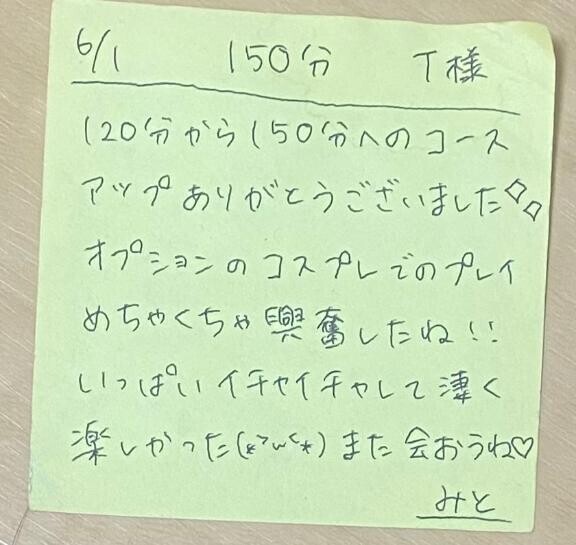 6/1 150分 T様
120分から150分へのコース
アップありがとうございました◇◇
オプションのコスプレでのプレイ
めちゃくちゃ興奮したね!!
いっぱいイチャイチャして凄く
楽しかった(*>ω<*)また会おうね♡
みと